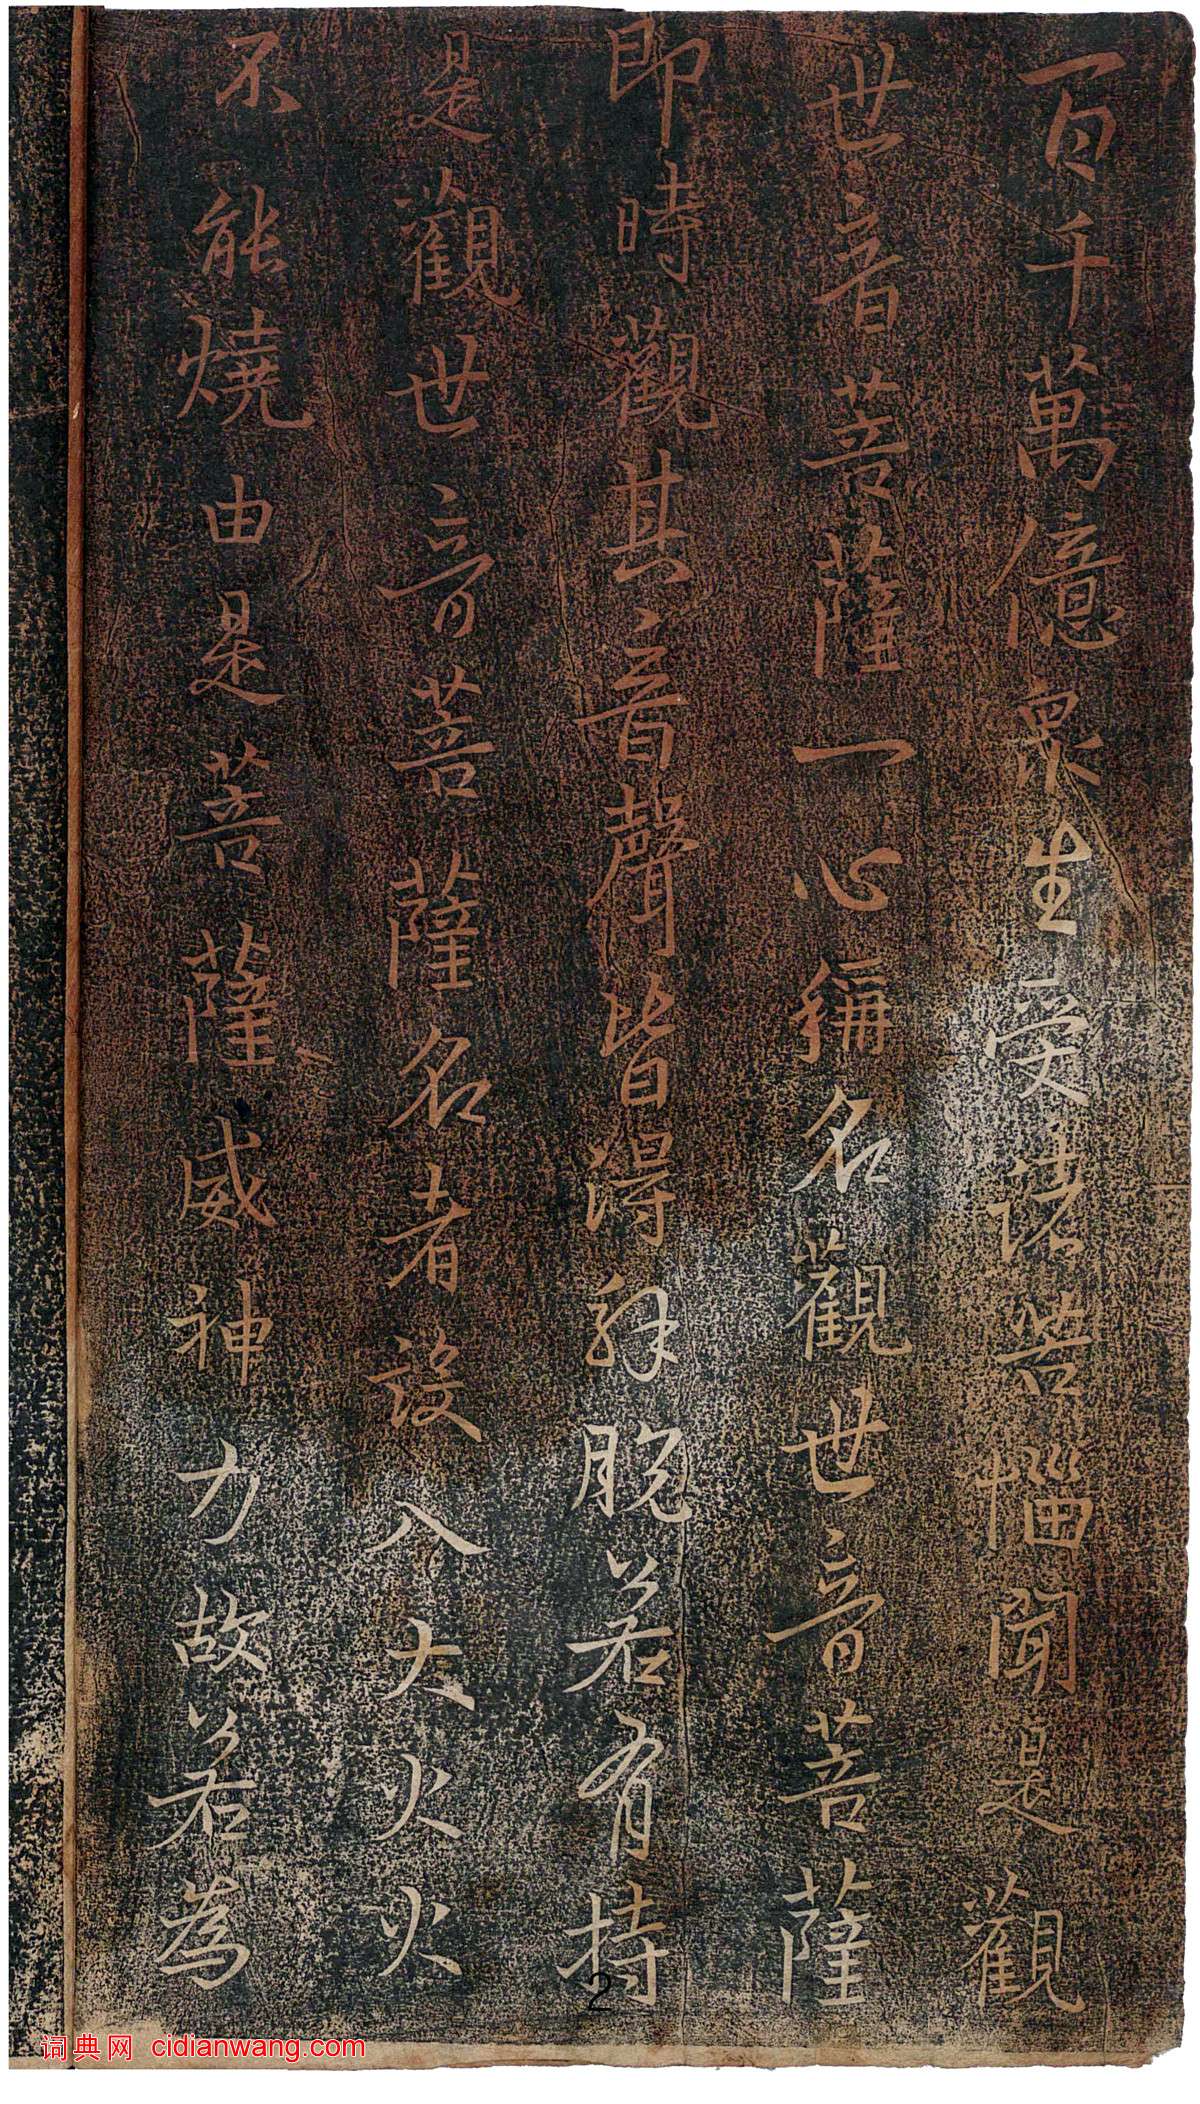 百千萬億眾生受諸苦惱聞是觀
世音菩薩一心稱名觀世音菩薩
即時觀其音聲皆得解脫若有持
是觀世音菩薩名者設入大火火
不能燒由是菩薩威神力故若為
2
词典网 cidianwang.com